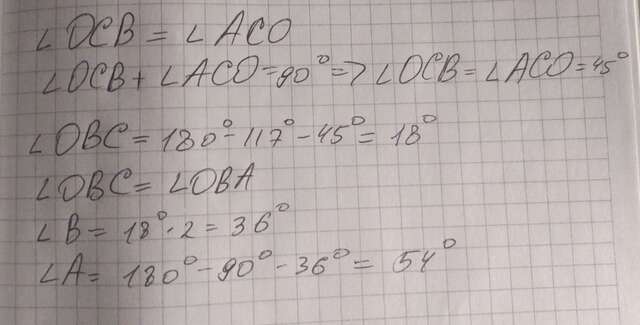 ∠OCB = ∠ACO
∠OCB + ∠ACO = 90° => ∠OCB = ∠ACO = 45°
∠OBC = 180° - 117° - 45° = 18°
∠OBC = ∠OBA
∠B = 18° · 2 = 36°
∠A = 180° - 90° - 36° = 54°